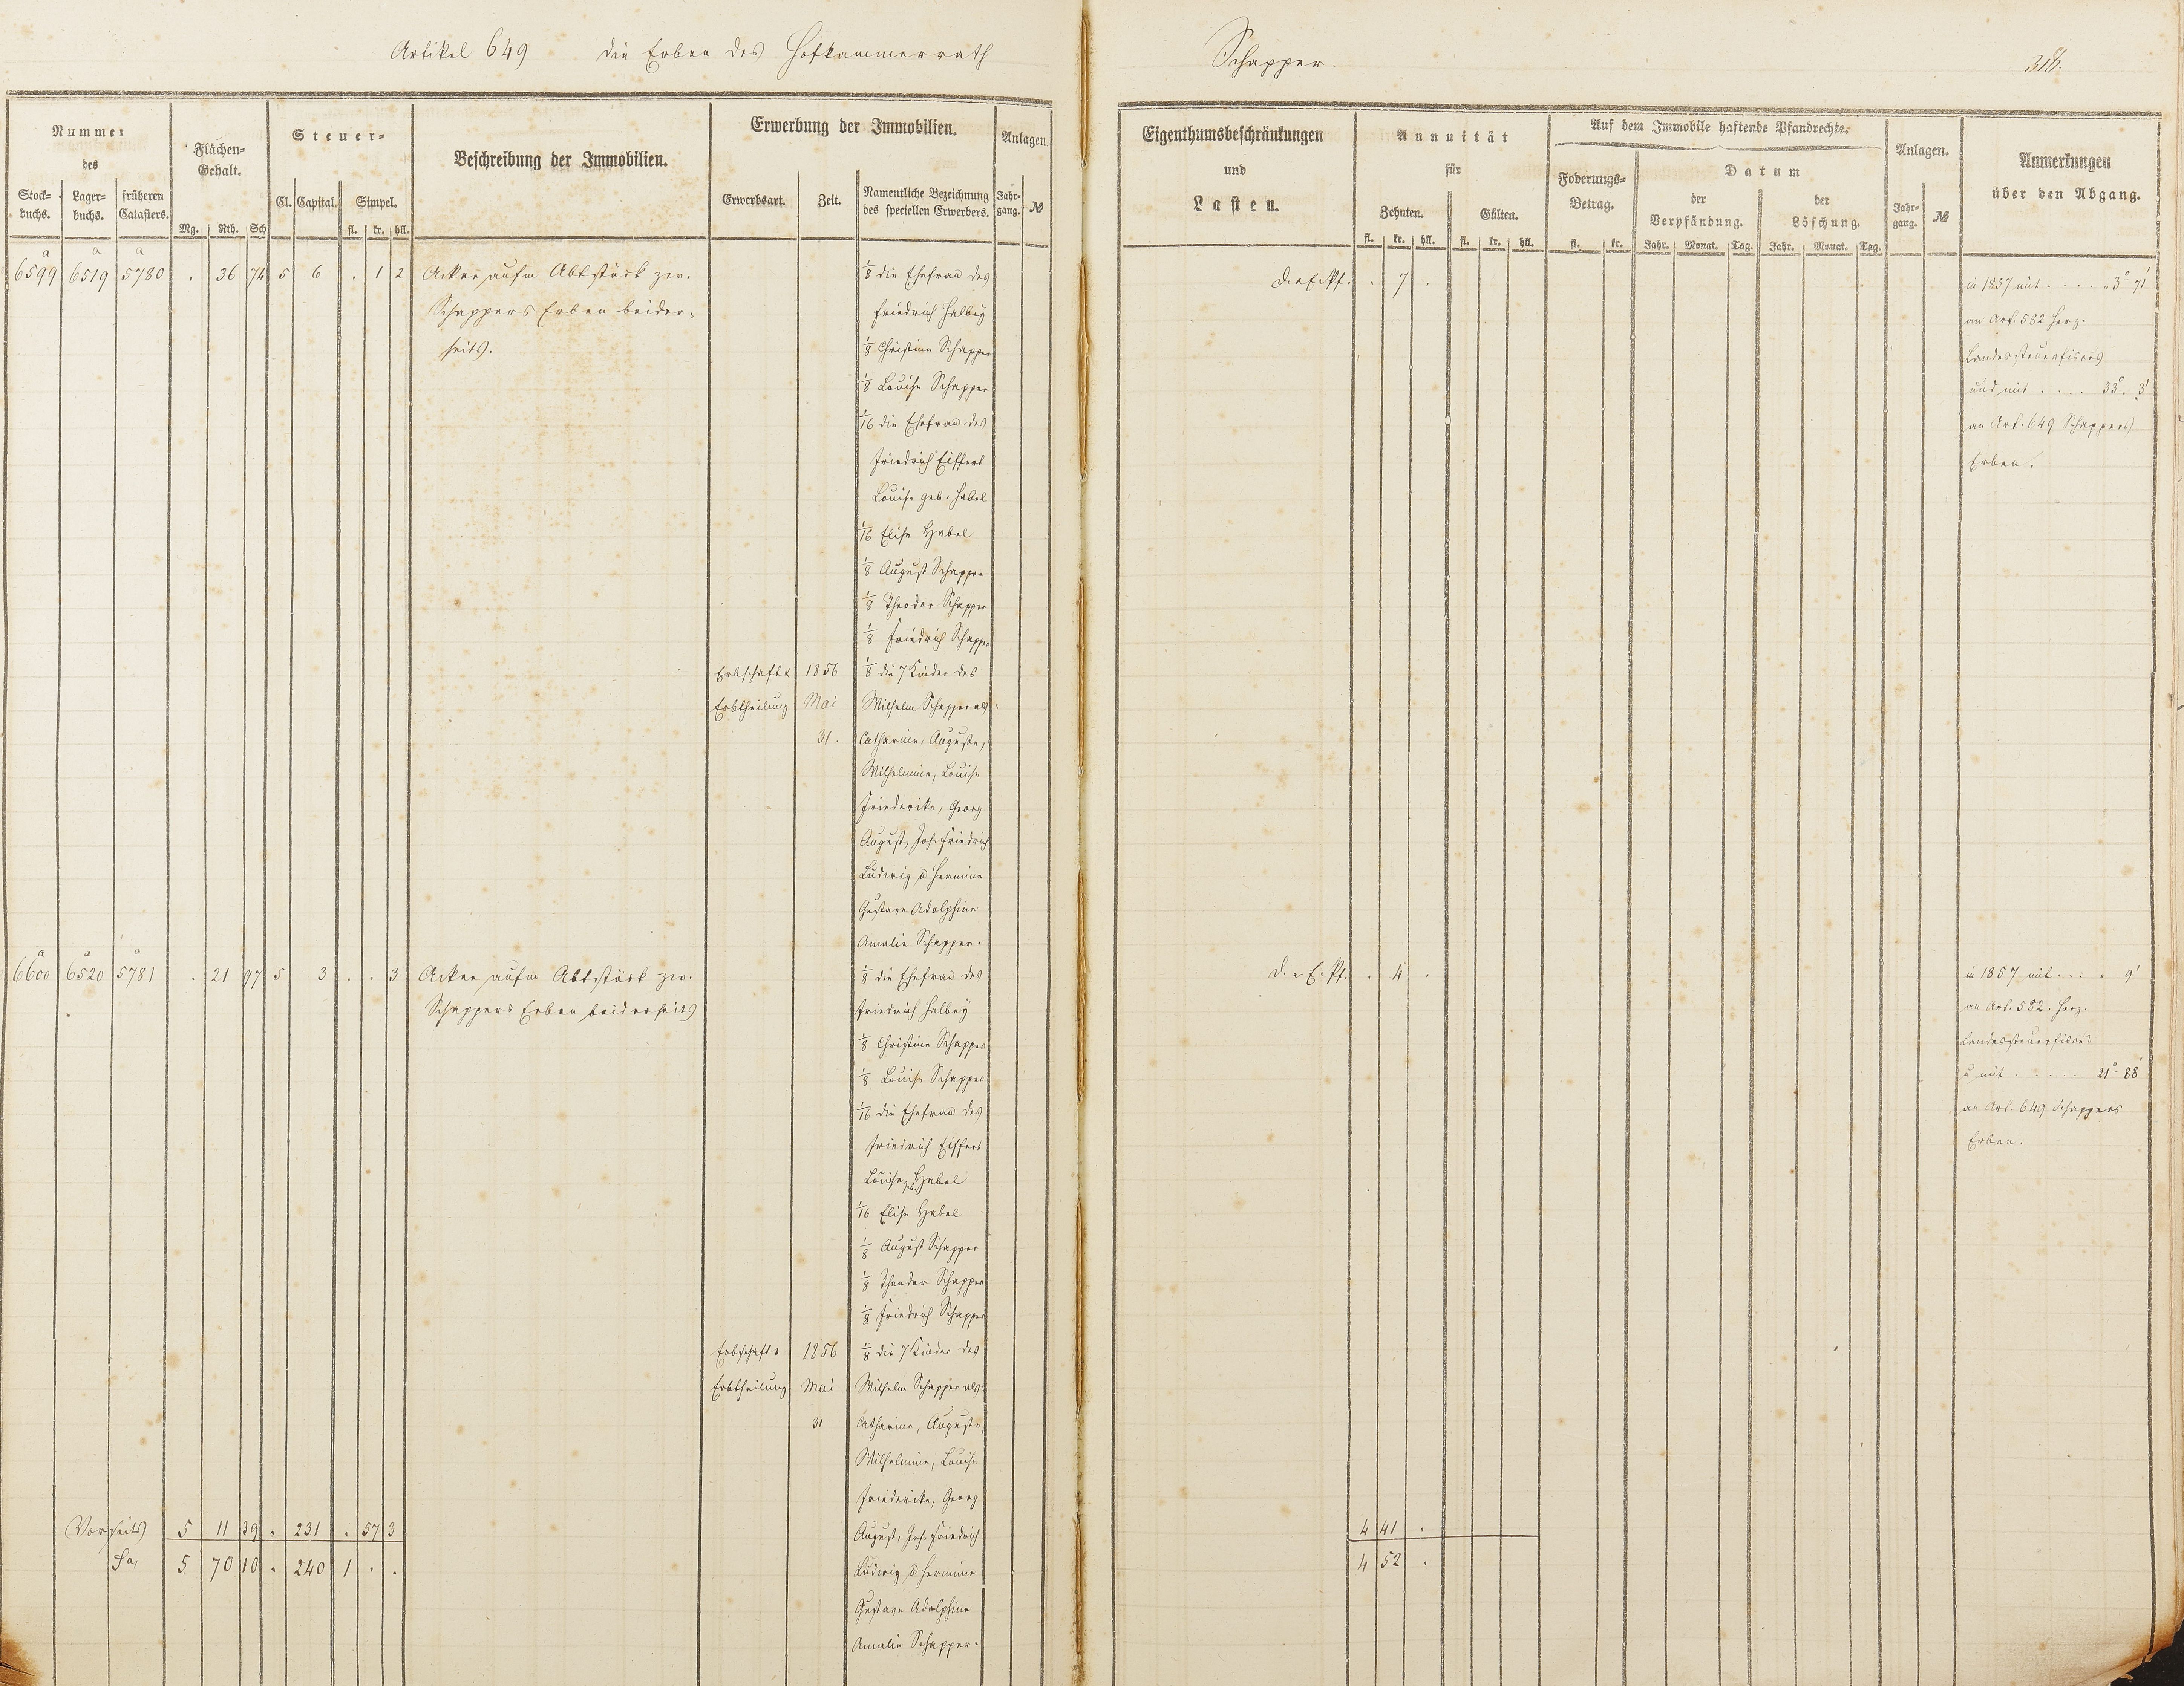 Artikel 649 die Erben des Hofkammerrath Schapper.
Nummer
des
Stock-
buchs.
Lager-
buchs.
früheren
Catasters.
Flächen-
Gehalt.
Mg. Rth. Sch
Steuer-
Cl. Capital. Simpel.
fl. kr. hll.
Beschreibung der Immobilien.
Erwerbung der Immobilien.
Erwerbsart. Zeit.
Namentliche Bezeichnung
des speciellen Erwerbers.
Anlagen.
Jahr-
gang. №
Eigenthumsbeschränkungen
und
Lasten.
Annuität
für
Zehnten. Gülten.
fl. kr. hll. fl. kr. hll.
Auf dem Immobile haftende Pfandrechte.
Foderungs-
Betrag.
fl. kr.
Datum
der
Verpfändung.
der
Löschung.
Jahr. Monat. Tag. Jahr. Monat. Tag.
Anlagen.
Jahr-
gang. №
Anmerkungen
über den Abgang.
a a a
6599 6519 5780 . 36 74 5 6 . 1 2 Acker aufm Abtstück zw.
Schappers Erben beider-
seits.
1/8 die Ehefrau des
Friedrich Halbey
1/8 Christine Schapper
1/8 Louise Schapper
1/16 die Ehefrau des
Friedrich Eiffert
Louise geb. Habel
1/16 Elise Habel
1/8 August Schapper
1/8 Theodor Schapper
1/8 Friedrich Schapper
Erbschaft u 1856 1/8 die 7 Kinder des
Erbtheilung Mai Wilhelm Schapper als:
31. Catharine, Auguste,
Wilhelmine, Louise
Friederike, Georg
August, Joh. Friedrich
Ludwig u Hermine
Gustave Adolphine
Amalie Schapper.
D. u E. Pf. . 7 .
in 1857 mit . . . . 3° 71'
an Art. 582 Herz.
Landessteuerfiscus
und mit . . . . 33° 3'
an Art. 649 Schappers
Erben.
a a a
6600 6520 5781 . 21 97 5 3 . . 3 Acker aufm Abtstück zw.
Schappers Erben beiderseits
1/8 die Ehefrau des
Friedrich Halbey
1/8 Christine Schapper
1/8 Louise Schapper
1/16 die Ehefrau des
Friedrich Eiffert
Louise geb. Habel
1/16 Elise Habel
1/8 August Schapper
1/8 Theodor Schapper
1/8 Friedrich Schapper
Erbschaft u 1856 1/8 die 7 Kinder des
Erbtheilung Mai Wilhelm Schapper als:
31 Catharine, Auguste,
Wilhelmine, Louise
Friederike, Georg
August, Joh. Friedrich
Ludwig u Hermine
Gustave Adolphine
Amalie Schapper.
D. u E. Pf. . 4 .
in 1857 mit . . . . 9'
an Art. 582. Herz.
Landessteuerfiscus
u mit . . . . . 21° 88'
an Art. 649 Schappers
Erben.
Vorseits 5 11 39 . 231 . 57 3
4 41 .
Sa, 5 70 10 . 240 1 . .
4 52 .